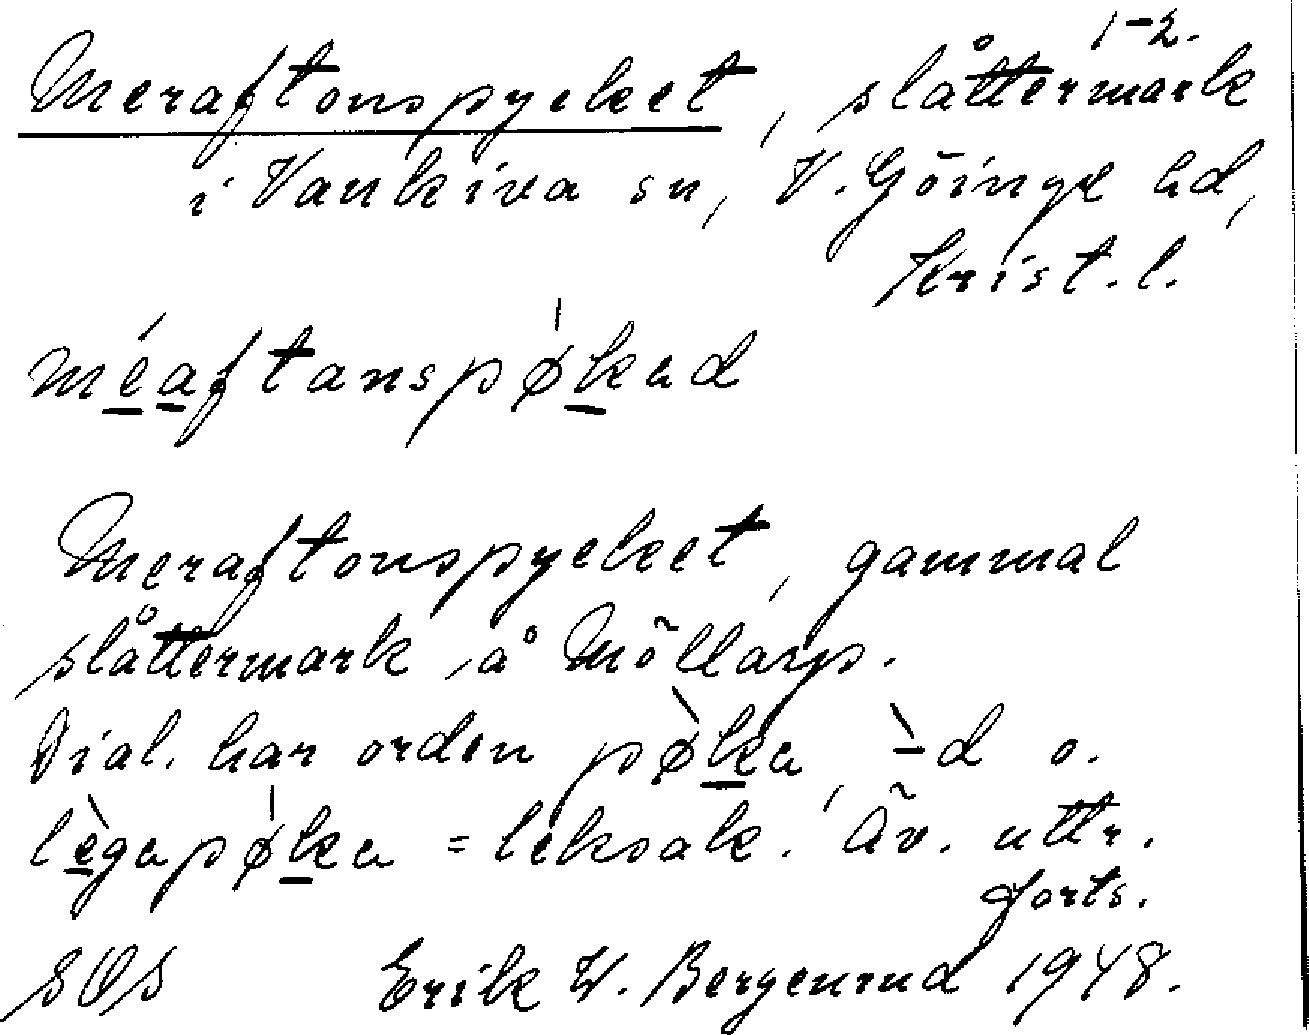 1-2.
Meraftonspycket, slåttermark
i Vankiva sn, V. Göinge hd,
Krist. l.
méaftanspø̍kad
Meraftonspycket, gammal
slåttermark å Möllarp.
Dial. har orden pø̀ka, -̀d o.
lègapø̍ka = leksak. Äv. uttr.
forts.
SOS Erik W. Bergenrud 1948.